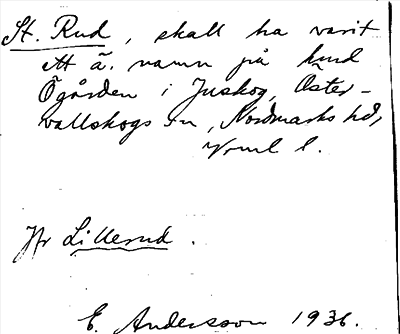 St. Rud, skall ha varit
ett ä. namn på hmd
Ögården i Juskog, Öster-
vallskogs sn, Nordmarks hd,
Vrml l.
Jfr Lillerud.
E. Andersson 1936.